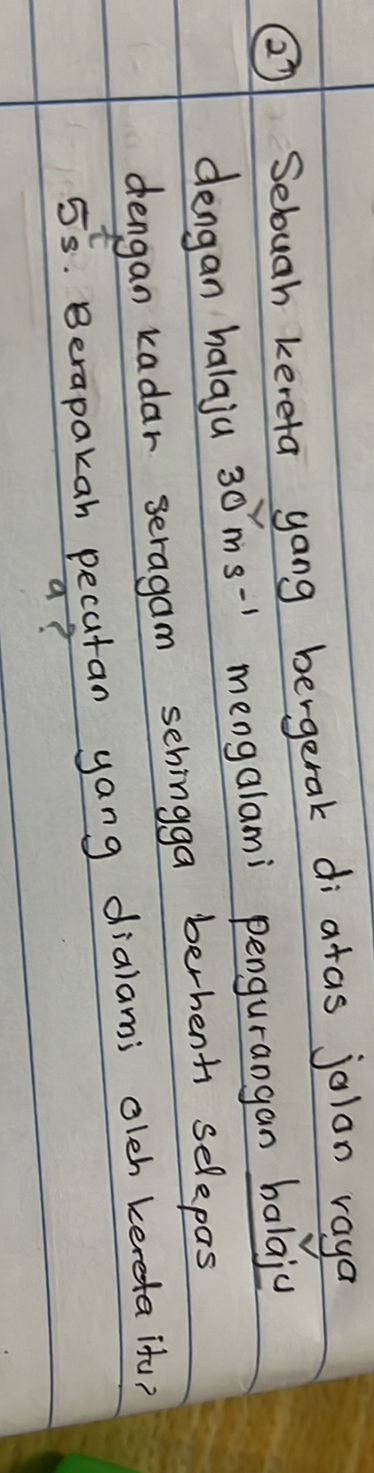 ② Sebuah kereta yang bergerak di atas jalan raya
dengan halaju 30 m s⁻¹ mengalami pengurangan halaju
dengan kadar seragam sehingga berhenti selepas
5 s. Berapakah pecutan yang dialami oleh kereta itu?
t
a?